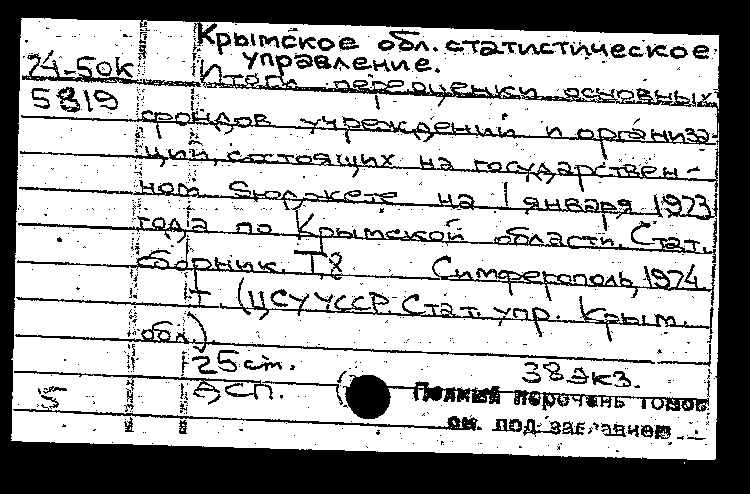 Крымское обл. статистическое
управление.
74-50К
Итоги переоценки основных
5819
фондов учреждений и организа-
ций, состоящих на государствен-
ном бюджете на 1 января 1973
года по Крымской области. Стат.
сборник. Т. 8 Симферополь, 1974
т. (ЦСУ УССР. Стат. упр. Крым.
обл.).
25 ст. 38 экз.
5 АСП. Полный перечень томов
см. под заглавием